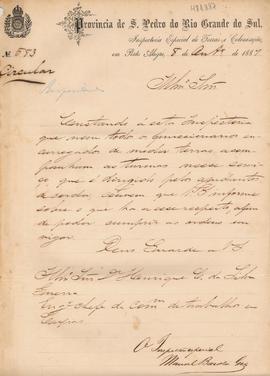 488,887
Provincia de S. Pedro do Rio Grande do Sul.
Inspectoria Especial de Terras e Colonisação,
em Porto Alegre, 8 de de 1887
Nº 583
Circular
Illmo Snr
Constando a esta Inspectoria
que nem todo o Commissarios en-
carregados de medir terras acom-
panham as turmas nesse servi-
ço, que é dirigido pelos ajudantes
de corda, convem que VS informe
sobre o que ha a esse respeito, afim
de poder cumprir as ordens em
vigor.
Deus Guarde a VS
Illmo Snr Dr Henrique C. da Silva
Engº Chefe da Comm de trabalhos em
O Inspector especial
Manoel